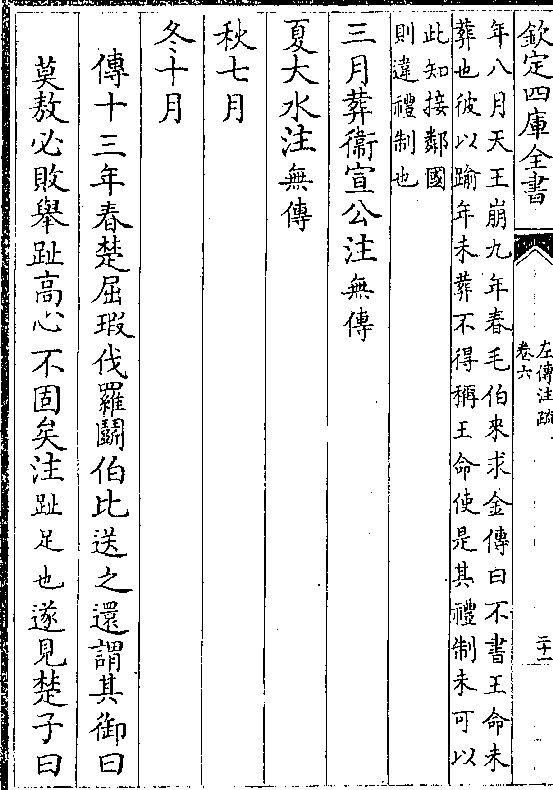 欽定四庫全書
左傳注疏
卷六
二十一
年八月天王崩九年春毛伯來求金傳曰不書王命未
葬也彼以踰年未葬不得稱王命使是其禮制未可以
此知接鄰國
則違禮制也
三月葬衞宣公注無傳
夏大水注無傳
秋七月
冬十月
傳十三年春楚屈瑕伐羅鬬伯比送之還謂其御曰
莫敖必敗舉趾高心不固矣注趾足也遂見楚子曰